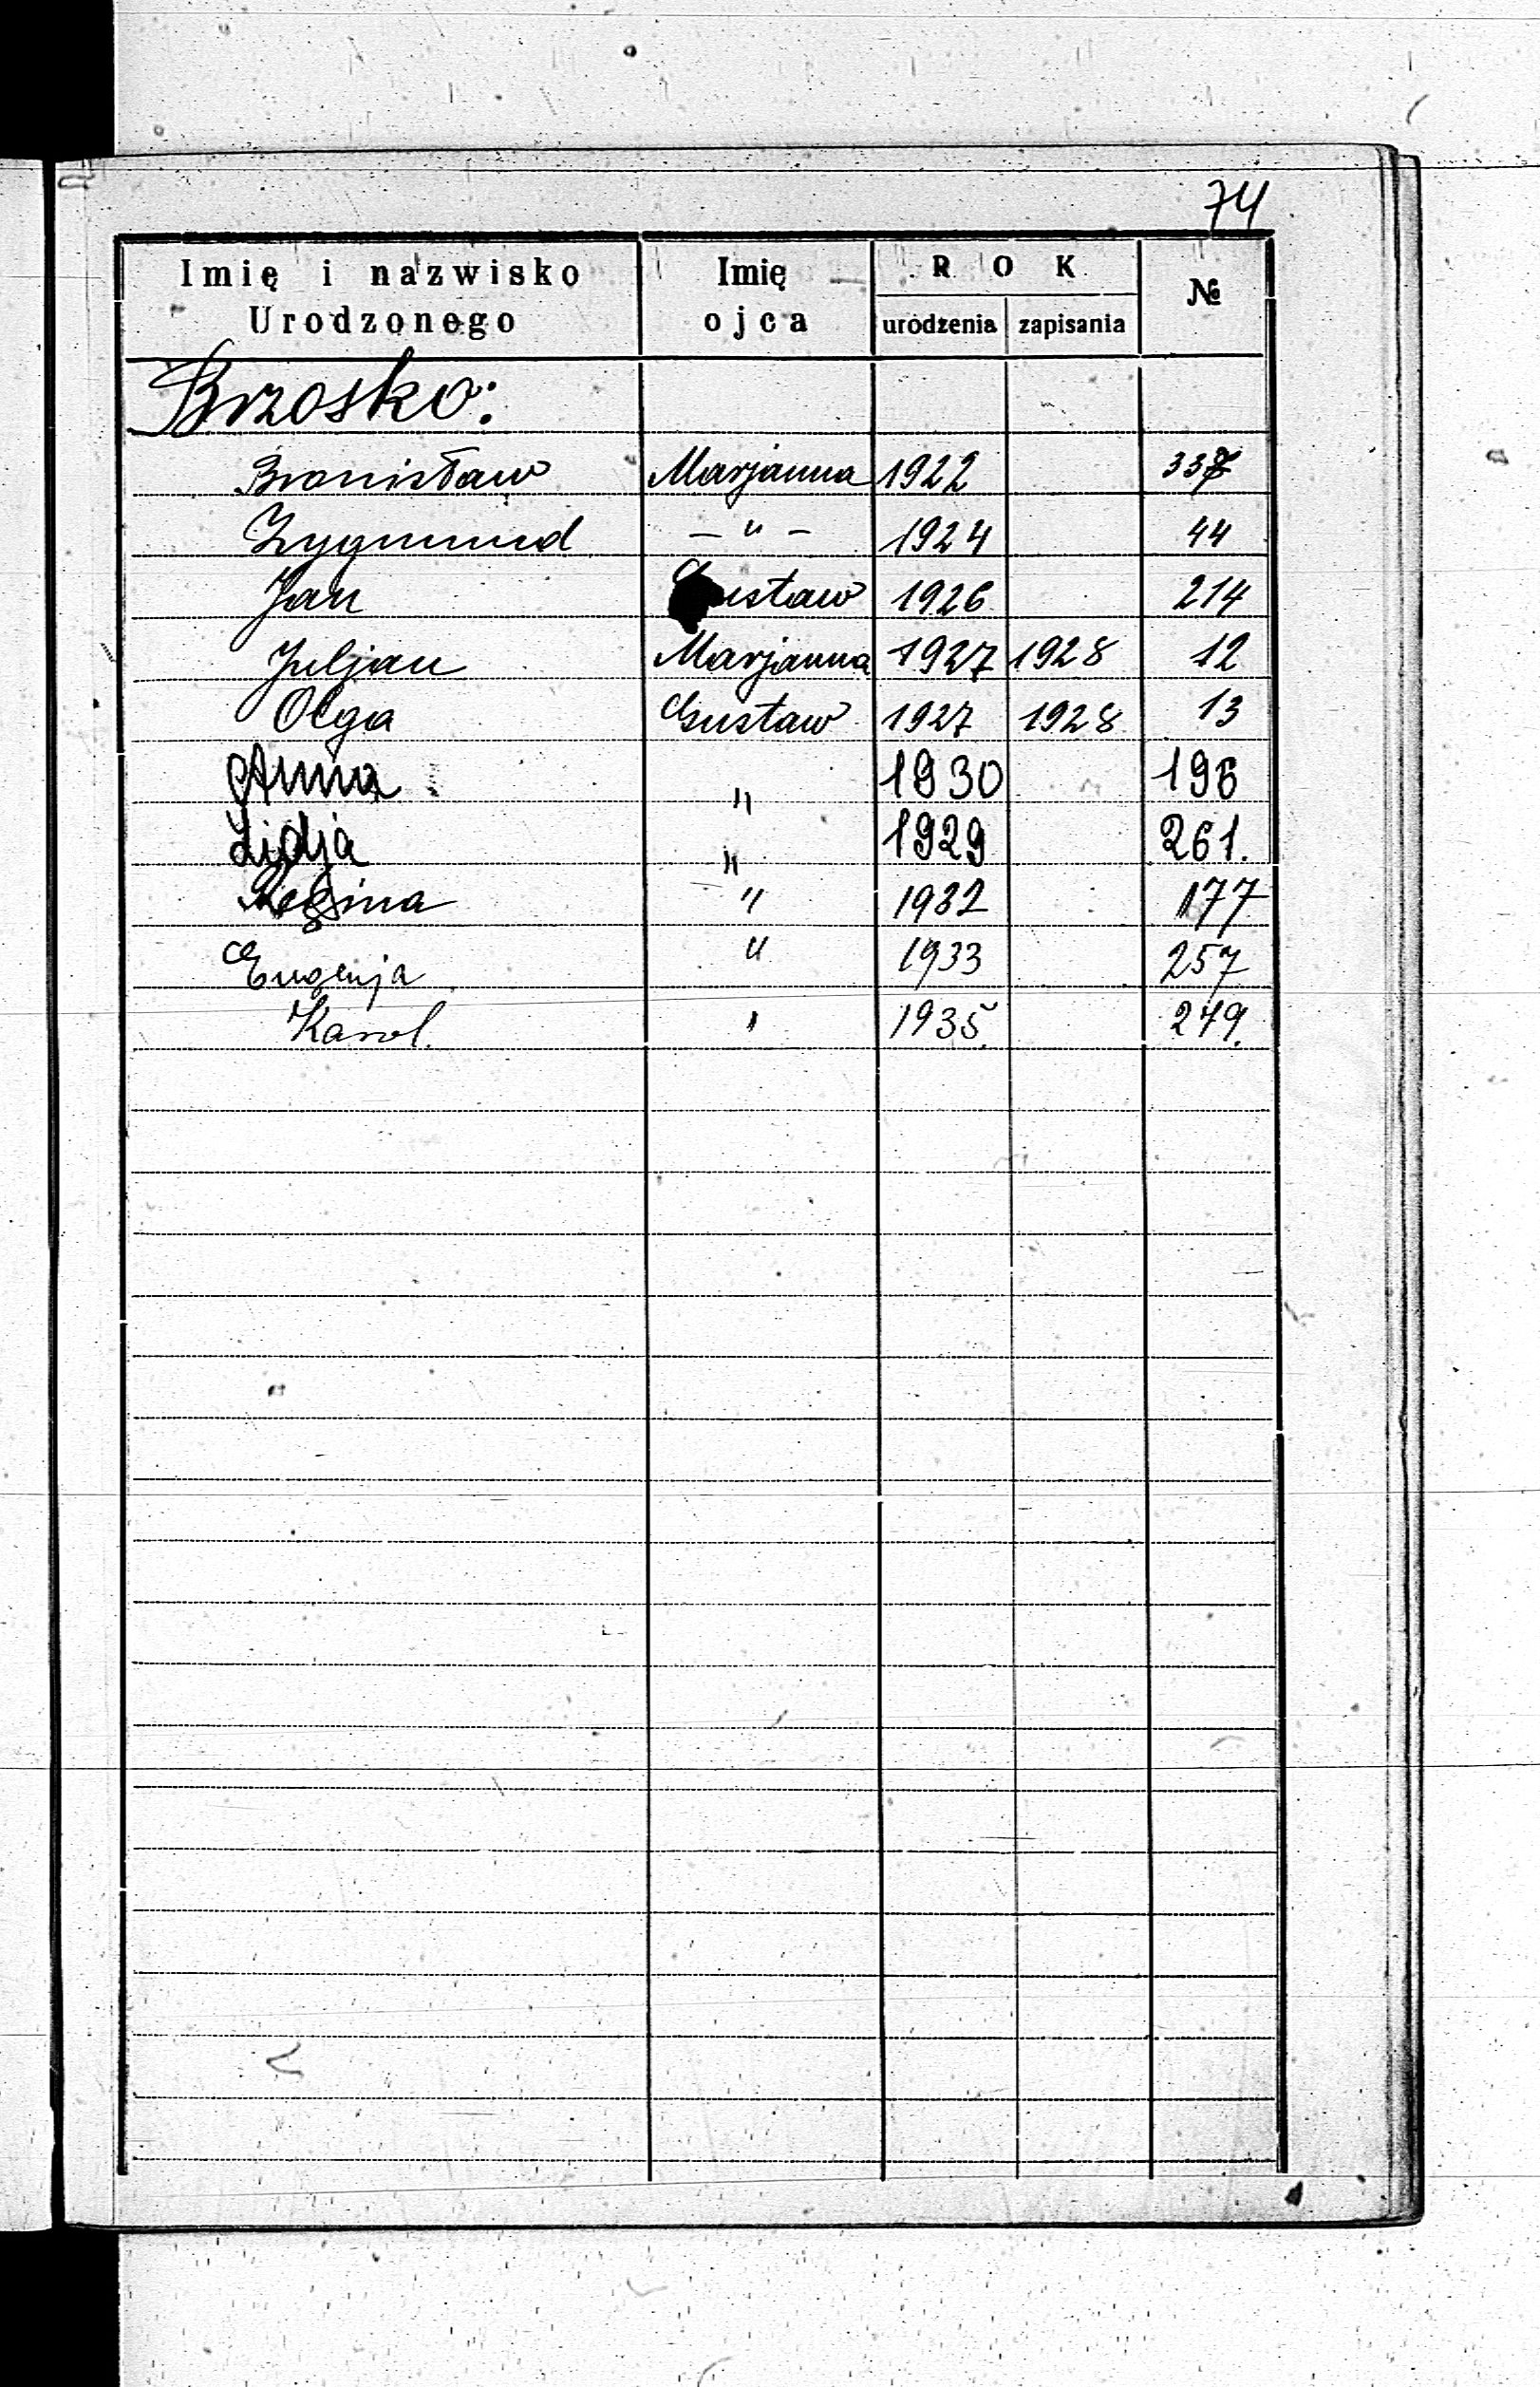 74
Imię i nazwisko Urodzonego Imię ojca ROK urodzenia zapisania №
Brzosko:
Bronisław Marjanna 1922 337
Zygmund — " — 1924 44
Jan Gustaw 1926 214
Juljan Marjanna 1927 1928 12
Olga Gustaw 1927 1928 13
Anna " 1930 196
Lidja " 1929 261.
Regina " 1932 177
Eugenja " 1933 257
Karol. " 1935. 279.